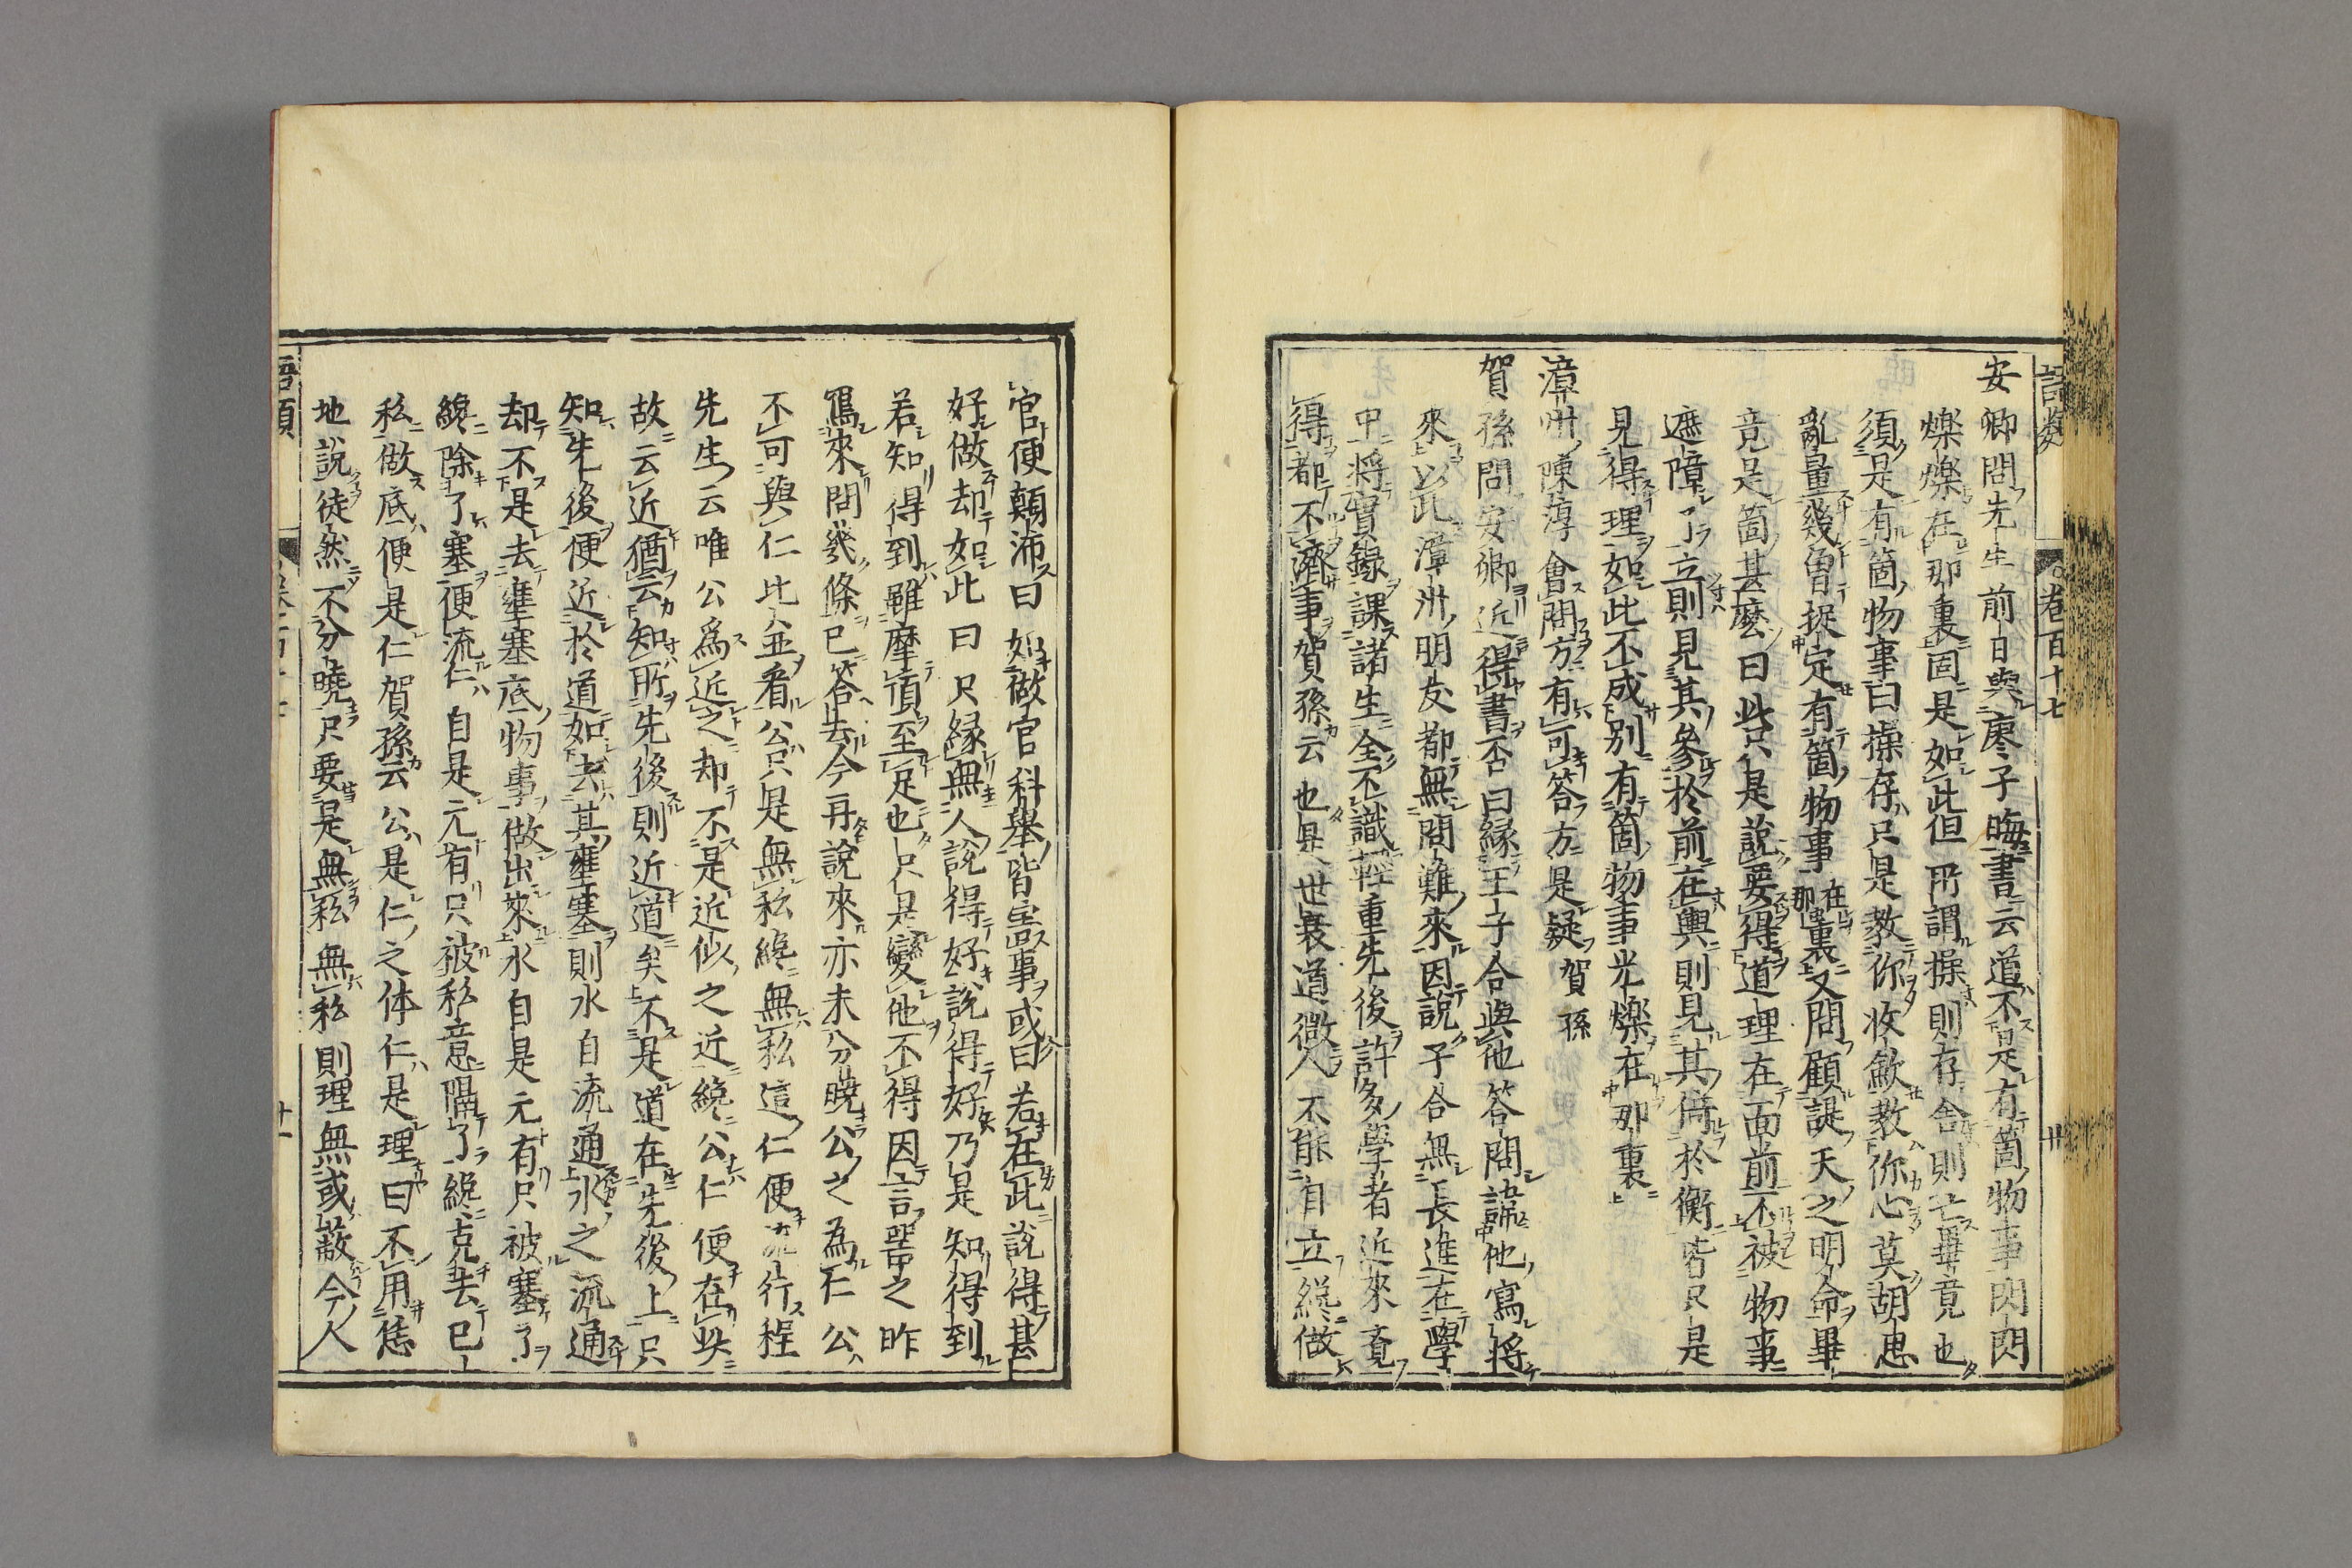 語類
卷百十七
安卿問先生前日與廖子晦書云道不是有箇物事閃閃
爍爍在那裏固是如此但所謂操則存舍則亡畢竟也
須是有箇物事曰操存只是教你收斂教你心莫胡思
亂量幾曾捉定有箇物事在那裏又問顧諟天之明命畢
竟是箇甚麼曰此只是說要得道理在面前不被物事
遮障了立則見其參於前在輿則見其倚於衡皆只是
見得理如此不成別有箇物事光爍在那裏
漳州陳淳會問方有可答方是疑賀孫
賀孫問安卿近得書否曰緣王子合與他答問諱他寫將
來以此漳州朋友都無問難來因說子合無長進在學
中將實錄課諸生全不識輕重先後許多學者近來覺
得都不濟事賀孫云也是世衰道微人不能自立纔做
官便顛沛曰如做官科舉皆害事或曰若在此說得甚
好做却如此曰只緣無人說得好說得好乃是知得到
若知得到雖摩頂至足也只是變他不得因言器之昨
寫來問幾條已答去今再說來亦未分曉公之為仁公
不可與仁比並看公只是無私纔無私這仁便流行程
先生云唯公爲近之却不是近似之近纔公仁便在此
故云近猶云知所先後則近道矣不是道在先後上只
知先後便近於道如去其壅塞則水自流通水之流通
却不是去壅塞底物事做出來水自是元有只被塞了
纔除了塞便流仁自是元有只被私意隔了纔克去已
私做底便是仁賀孫云公是仁之体仁是理曰不用恁
地說徒然不分曉只要是無私無私則理無或蔽今人
語類